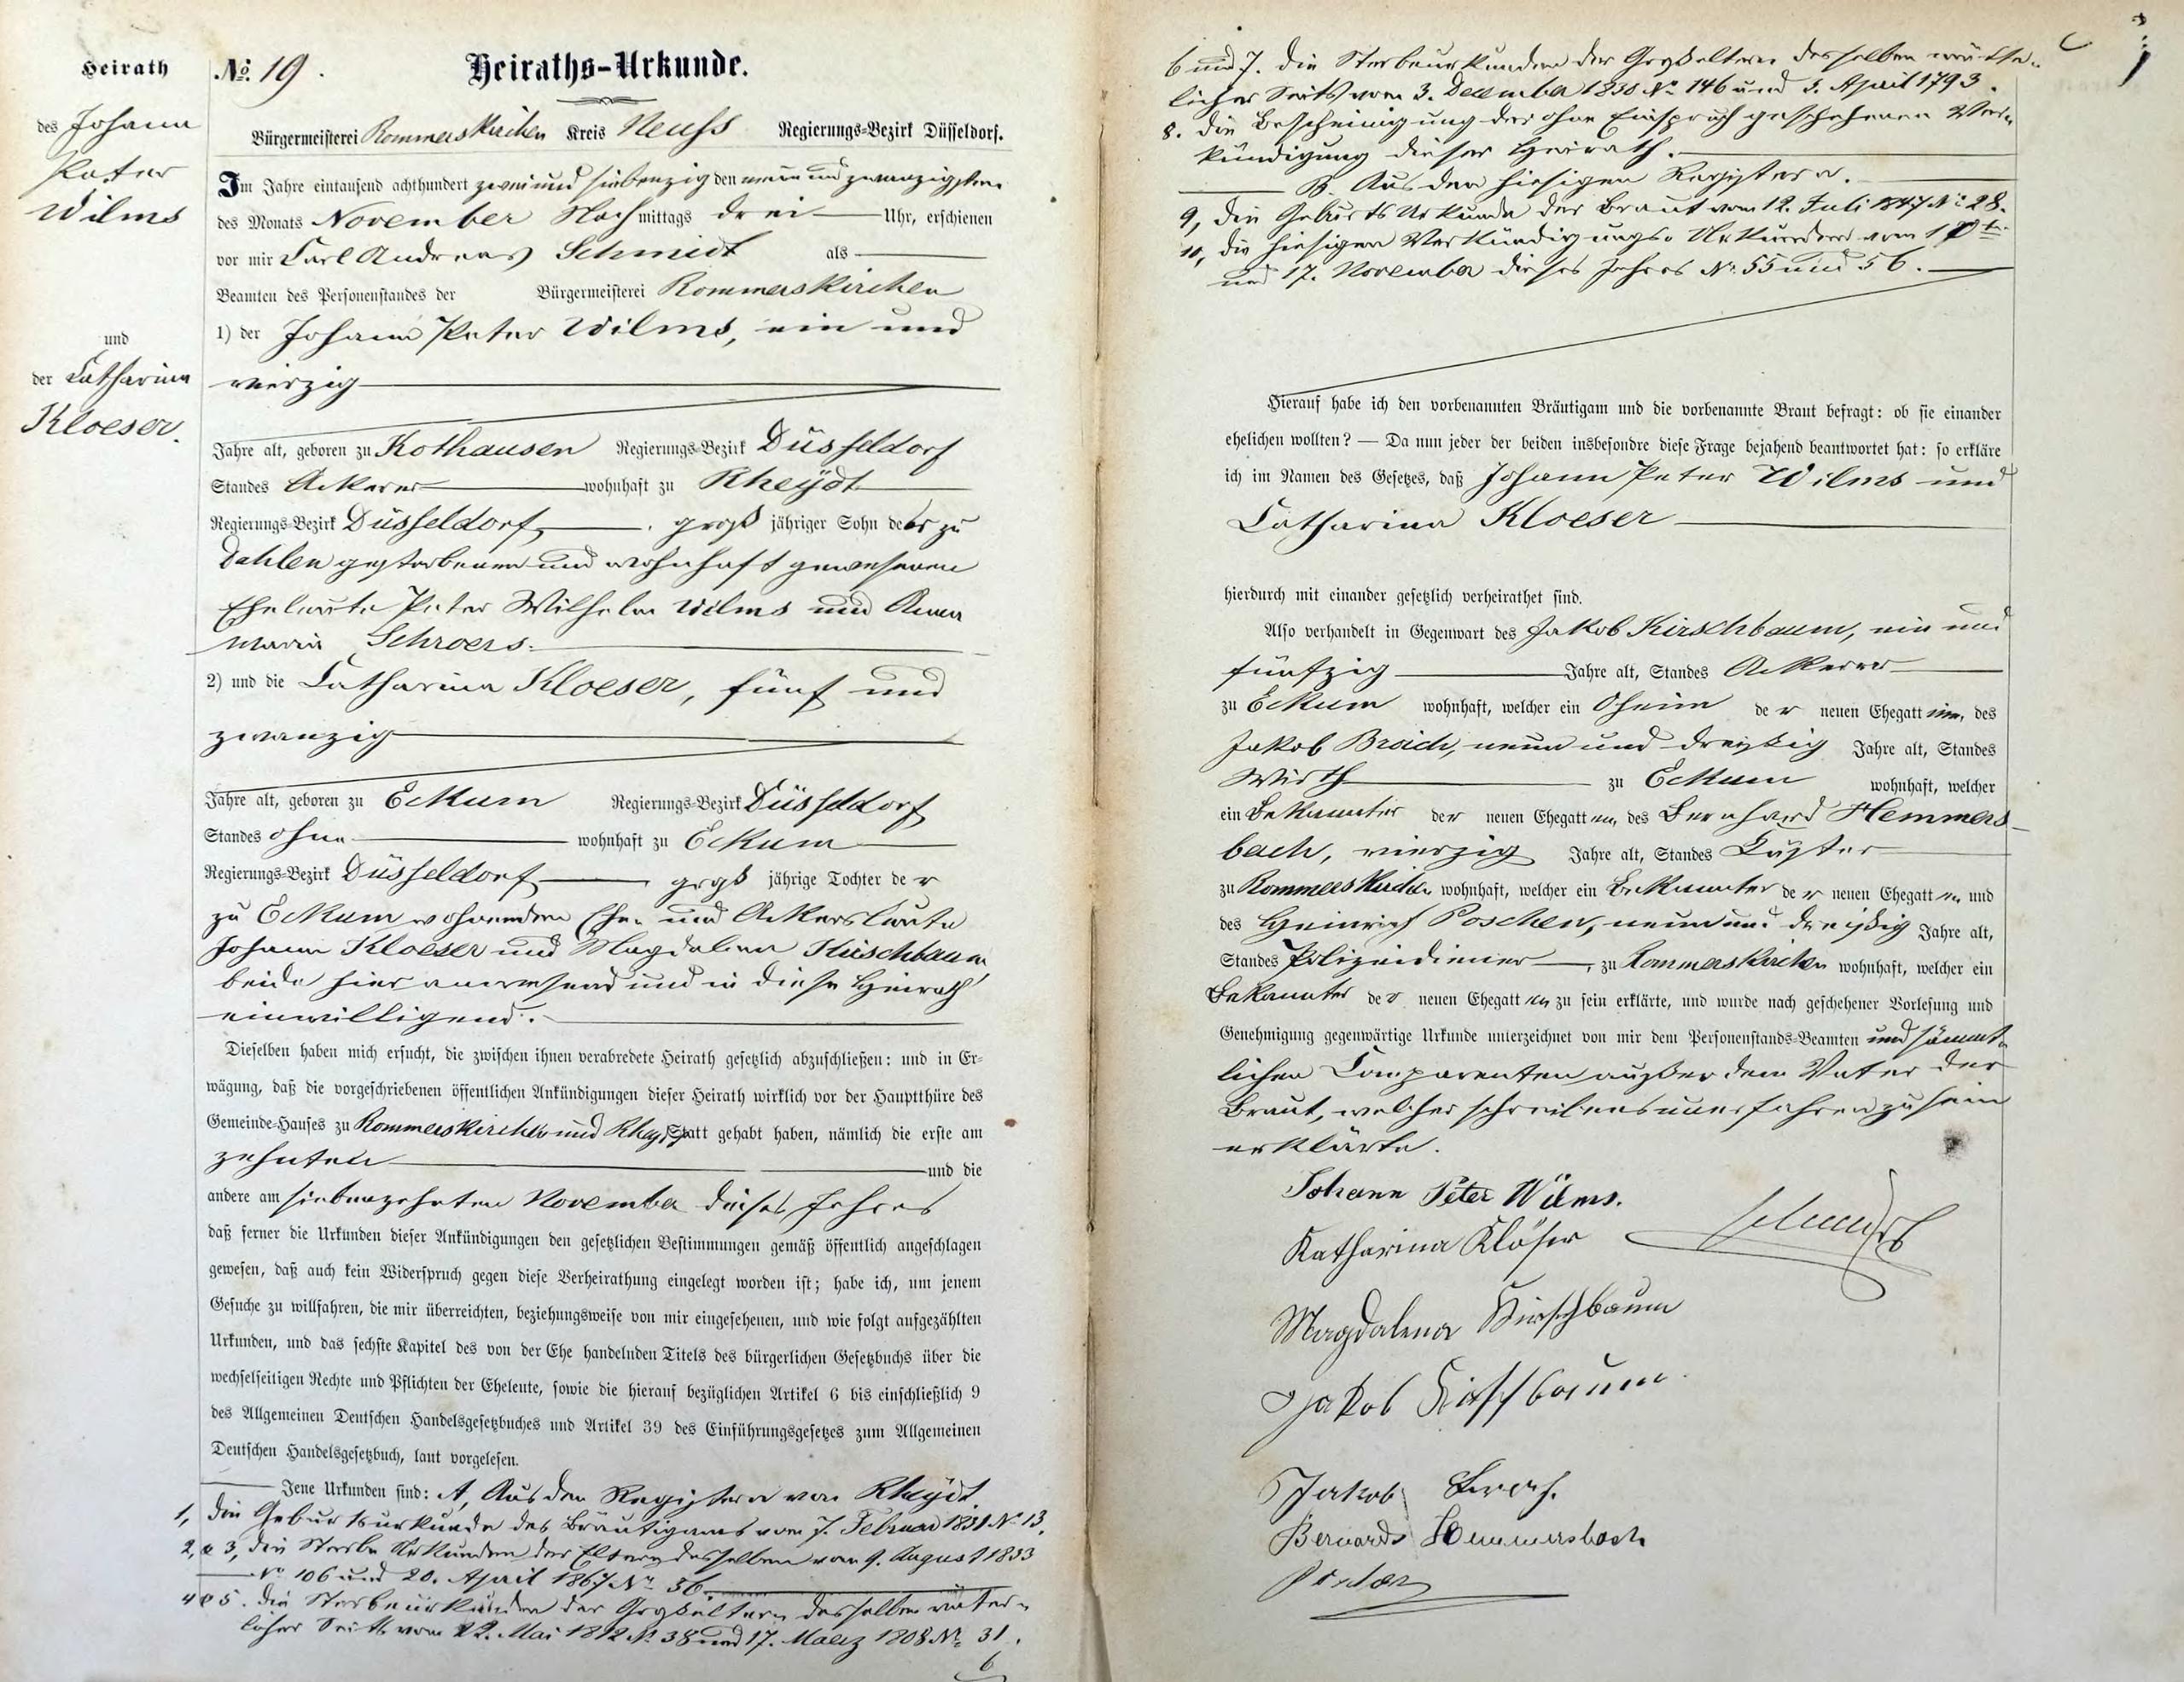 Heirath
des Johann
Peter
Wilms
und
der Catharina
Kloeser.
No. 19.
Heiraths-Urkunde.
Bürgermeisterei Rommerskirchen Kreis Neuss Regierungs-Bezirk Düsseldorf.
Im Jahre eintausend achthundert zwei und siebenzig den neun und zwanzigsten
des Monats November Nachmittags drei Uhr, erschienen
vor mir Carl Andreas Schmidt als
Beamten des Personenstandes der Bürgermeisterei Rommerskirchen
1) der Johann Peter Wilms, ein und
vierzig
Jahre alt, geboren zu Kothausen Regierungs-Bezirk Düsseldorf
Standes Ackerer wohnhaft zu Rheydt
Regierungs-Bezirk Düsseldorf, groß jähriger Sohn der zu
Dahlen gestorbenen und wohnhaft gewesenen
Eheleute Peter Wilhelm Wilms und Anna
Maria Schroers.
2) und die Catharina Kloeser, fünf und
zwanzig
Jahre alt, geboren zu Eckum Regierungs-Bezirk Düsseldorf
Standes ohne wohnhaft zu Eckum
Regierungs-Bezirk Düsseldorf, groß jährige Tochter der
zu Eckum wohnenden Ehe- und Ackersleute
Johann Kloeser und Magdalena Kirschbaum
beide hier anwesend und in diese Heirath
einwilligend.
Dieselben haben mich ersucht, die zwischen ihnen verabredete Heirath gesetzlich abzuschließen: und in Er-
wägung, daß die vorgeschriebenen öffentlichen Ankündigungen dieser Heirath wirklich vor der Hauptthüre des
Gemeinde-Hauses zu Rommerskirchen und Rheydt Statt gehabt haben, nämlich die erste am
zehnten und die
andere am siebenzehnten November dieses Jahres
daß ferner die Urkunden dieser Ankündigungen den gesetzlichen Bestimmungen gemäß öffentlich angeschlagen
gewesen, daß auch kein Widerspruch gegen diese Verheirathung eingelegt worden ist; habe ich, um jenem
Gesuche zu willfahren, die mir überreichten, beziehungsweise von mir eingesehenen, und wie folgt aufgezählten
Urkunden, und das sechste Kapitel des von der Ehe handelnden Titels des bürgerlichen Gesetzbuchs über die
wechselseitigen Rechte und Pflichten der Eheleute, sowie die hierauf bezüglichen Artikel 6 bis einschließlich 9
des Allgemeinen Deutschen Handelsgesetzbuches und Artikel 39 des Einführungsgesetzes zum Allgemeinen
Deutschen Handelsgesetzbuch, laut vorgelesen.
Jene Urkunden sind: A, Aus den Registern von Rheydt.
1, die Geburtsurkunde des Bräutigams vom 7. Februar 1831 No 13.
2, & 3, die Sterbe Urkunden der Eltern desselben vom 9. August 1833
No 106 und 20. April 1867 No 36.
4 & 5. die Sterbeurkunden der Großeltern desselben väter-
licher Seits vom 22. Mai 1812 No 38 und 17. Maerz 1808 No 31.
6
6 und 7. die Sterbeurkunden der Großeltern desselben mütter-
licher Seits vom 3. December 1830 No 146 und 5. April 1793.
8. die Bescheinigung der ohne Einspruch geschehenen Ver-
kündigung dieser Heirath.
B. Aus den hiesigen Registern.
9, die Geburts Urkunde der Braut vom 12. Juli 1847 No 28.
10, die hiesigen Verkündigungs-Urkunden vom 10ten
und 17. November dieses Jahres No 55 und 56.
Hierauf habe ich den vorbenannten Bräutigam und die vorbenannte Braut befragt: ob sie einander
ehelichen wollten? — Da nun jeder der beiden insbesondre diese Frage bejahend beantwortet hat: so erkläre
ich im Namen des Gesetzes, daß Johann Peter Wilms und
Catharina Kloeser
hierdurch mit einander gesetzlich verheirathet sind.
Also verhandelt in Gegenwart des Jakob Kirschbaum, ein und
fünfzig Jahre alt, Standes Ackerer
zu Eckum wohnhaft, welcher ein Oheim der neuen Ehegattinn, des
Jakob Broich, neun und dreyßig Jahre alt, Standes
Wirth zu Eckum wohnhaft, welcher
ein Bekannter der neuen Ehegatten, des Bernhard Hemmers-
bach, vierzig Jahre alt, Standes Küster
zu Rommerskirchen wohnhaft, welcher ein Bekannter der neuen Ehegatten und
des Heinrich Poschen, neun und dreyßig Jahre alt,
Standes Polizeidiener, zu Rommerskirchen wohnhaft, welcher ein
Bekannter der neuen Ehegatten zu sein erklärte, und wurde nach geschehener Vorlesung und
Genehmigung gegenwärtige Urkunde unterzeichnet von mir dem Personenstands-Beamten und sämmt-
lichen Comparenten außer dem Vater der
Braut, welcher schreibensunerfahren zu sein
erklärte.
Johann Peter Wilms.
Katharina Klöser Schmidt
Magdalena Kirschbaum
Jakob Kirschbaum
Jakob Broich.
Bernard Hemmersbach
Poschen